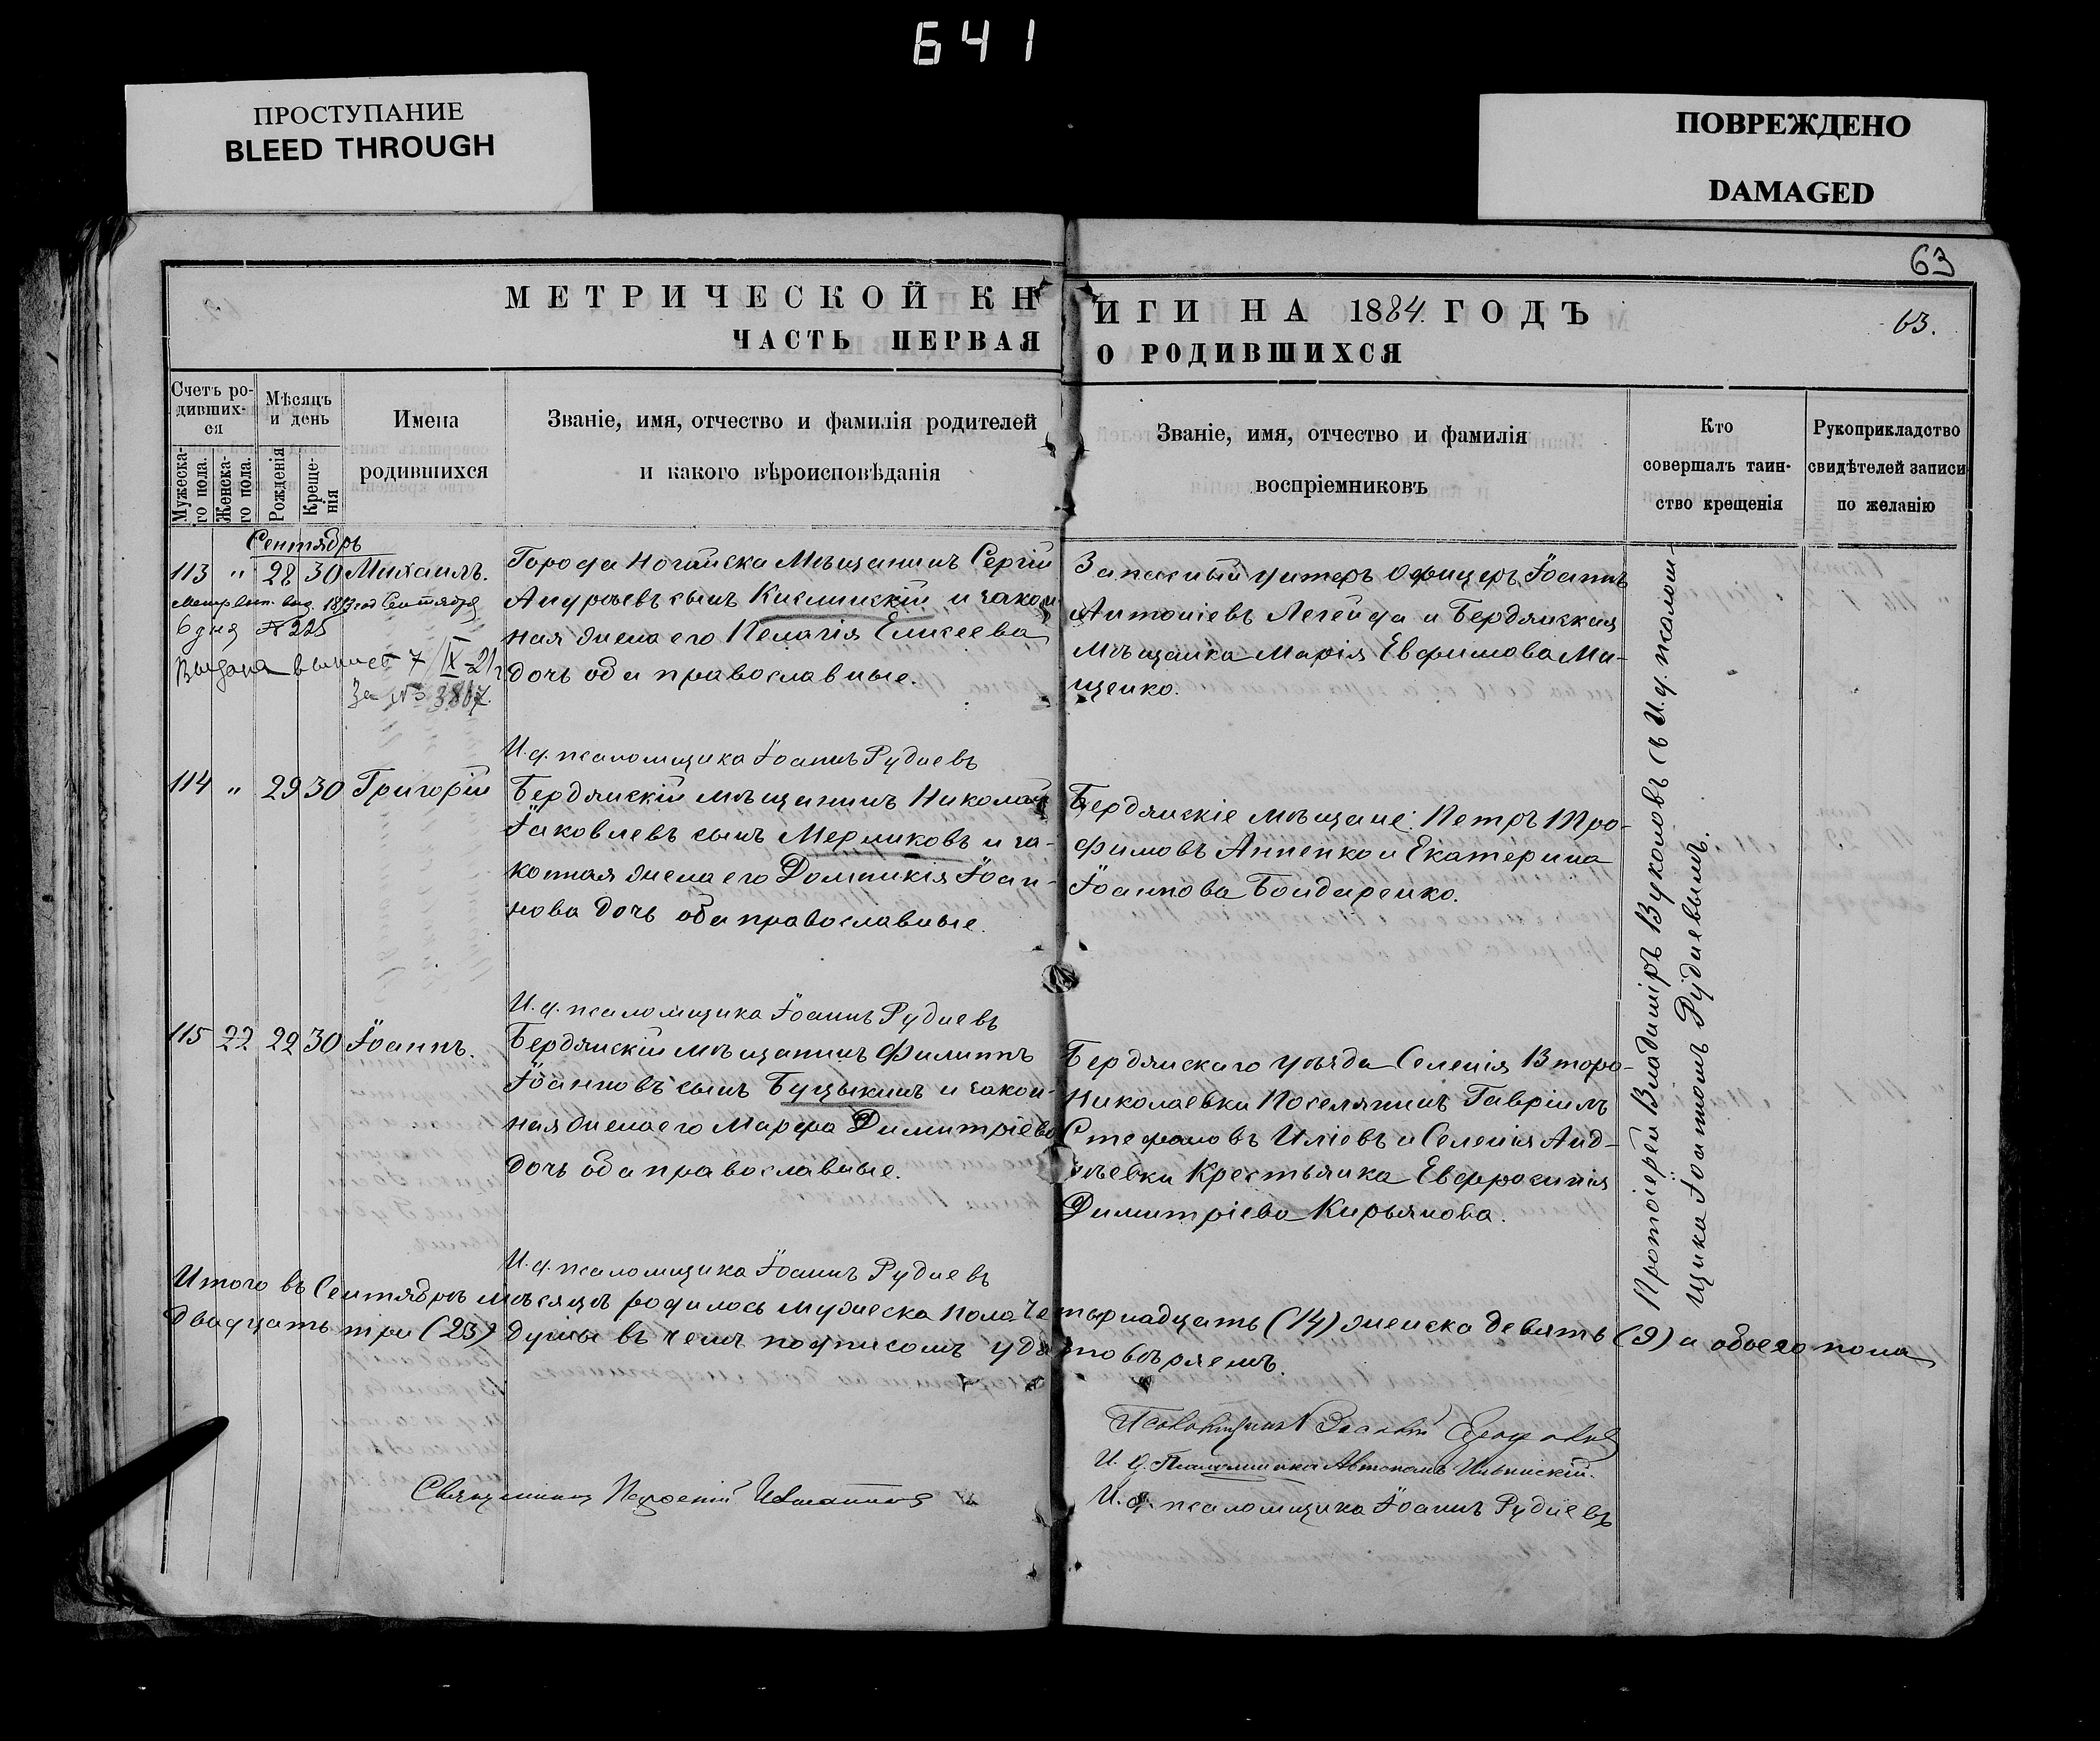 641
ПРОСТУПАНИЕ
BLEED THROUGH
ПОВРЕЖДЕНО
DAMAGED
63
МЕТРИЧЕСКОЙ КНИГИ НА 1884 ГОДЪ
63.
ЧАСТЬ ПЕРВАЯ О РОДИВШИХСЯ
Счетъ ро-
дивших-
ся
Мужеска-
го пола.
Женска-
го пола.
Мѣсяцъ
и день
Рожденія
Креще-
нія
Имена
родившихся
Званіе, имя, отчество и фамилія родителей
и какого вѣроисповѣданія
Званіе, имя, отчество и фамилія
воспріемниковъ
Кто
совершалъ таин-
ство крещенія
Рукоприкладство
свидѣтелей записи
по желанію
Сентябрь
113 " 28 30 Михаилъ.
6 дня № 225
Выдана выпись 7/IX-21 г
За № 3807.
Города Ногайска Мѣщанинъ Сергій
Андреевъ сынъ Кислинскій и закон
ная жена его Пелагія Елисеева
дочь оба православные.
Запасный унтеръ Офицеръ Іоаннъ
Антоніевъ Легейда и Бердянская
Мѣщанка Марія Евфимова Ми-
щенко.
И. д. псаломщика Іоаннъ Рудневъ
114 " 29 30 Григорій
Бердянскій мѣщанинъ Николай
Іаковлевъ сынъ Мерликовъ и за-
конная жена его Домникія Іоан-
нова дочь оба православные.
Бердянскіе мѣщане: Петръ Тро-
фимовъ Анненко и Екатерина
Іоаннова Бондаренко.
И. д. псаломщика Іоаннъ Рудневъ
115 22 22 30 Іоаннъ.
Бердянскій мѣщанинъ Филиппъ
Іоанновъ сынъ Буцыкинъ и закон-
ная жена его Марфа Димитріева
дочь оба православные.
Бердянскаго уѣзда Селенія Второ-
Николаевки Поселянинъ Гавріилъ
Стефановъ Иліевъ и Селенія Анд-
реевки Крестьянка Евфросинія
Димитріева Кирьякова.
И. д. псаломщика Іоаннъ Рудневъ
Протоіерей Владиміръ Вуколовъ съ И. д. псалом-
щика Іоанномъ Рудневымъ.
Итого въ Сентябрѣ мѣсяцѣ родилось мужеска пола четырнадцать (14) женска девять (9) а обоего пола
двадцать три (23) души въ чемъ подписомъ удостовѣряемъ.
И. д. Псаломщика Автономъ Ильинскій.
Священникъ
И. д. псаломщика Іоаннъ Рудневъ